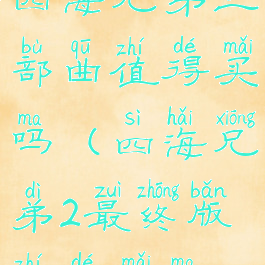 四海兄弟三
bù qū zhí dé mǎi
部曲值得买
ma sì hǎi xiōng
吗（四海兄
dì zuì zhōng bǎn
弟2最终版
zhí dé mǎi ma